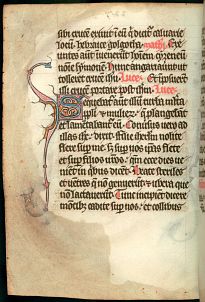 sibi crucē exiuit ī eū q̄ dicit͛ caluarie
locū. hebraice golgotha. math͛. Exe
untes aūt inuenerūt hoīem cyreneū
noīe symonē. Hunc angariauerūt ut
tolleret crucē eiꝰ. Luce. Et īposuerūt
illi crucē portare post ihm. Luce.
Sequebat͛ aūt illū turba mlta
ppli ⁊ mulierū. q̄ plangebāt
et lamētabant͛ eū. Conuersus vero ad
illas ihc. dixit. filie ihrlm nolite
flere sup me. sꝫ sup uos ipās flete
et sup filios vr̄os. qm̄ ecce dies ue
nient in qibꝰ dicēt. Beate steriles
et uētres q̄ nō genuerūt. ⁊ ubera que
nō lactauerūt. Tunc incipiēt dicere
mōtibꝫ cadite sup nos. et collibus